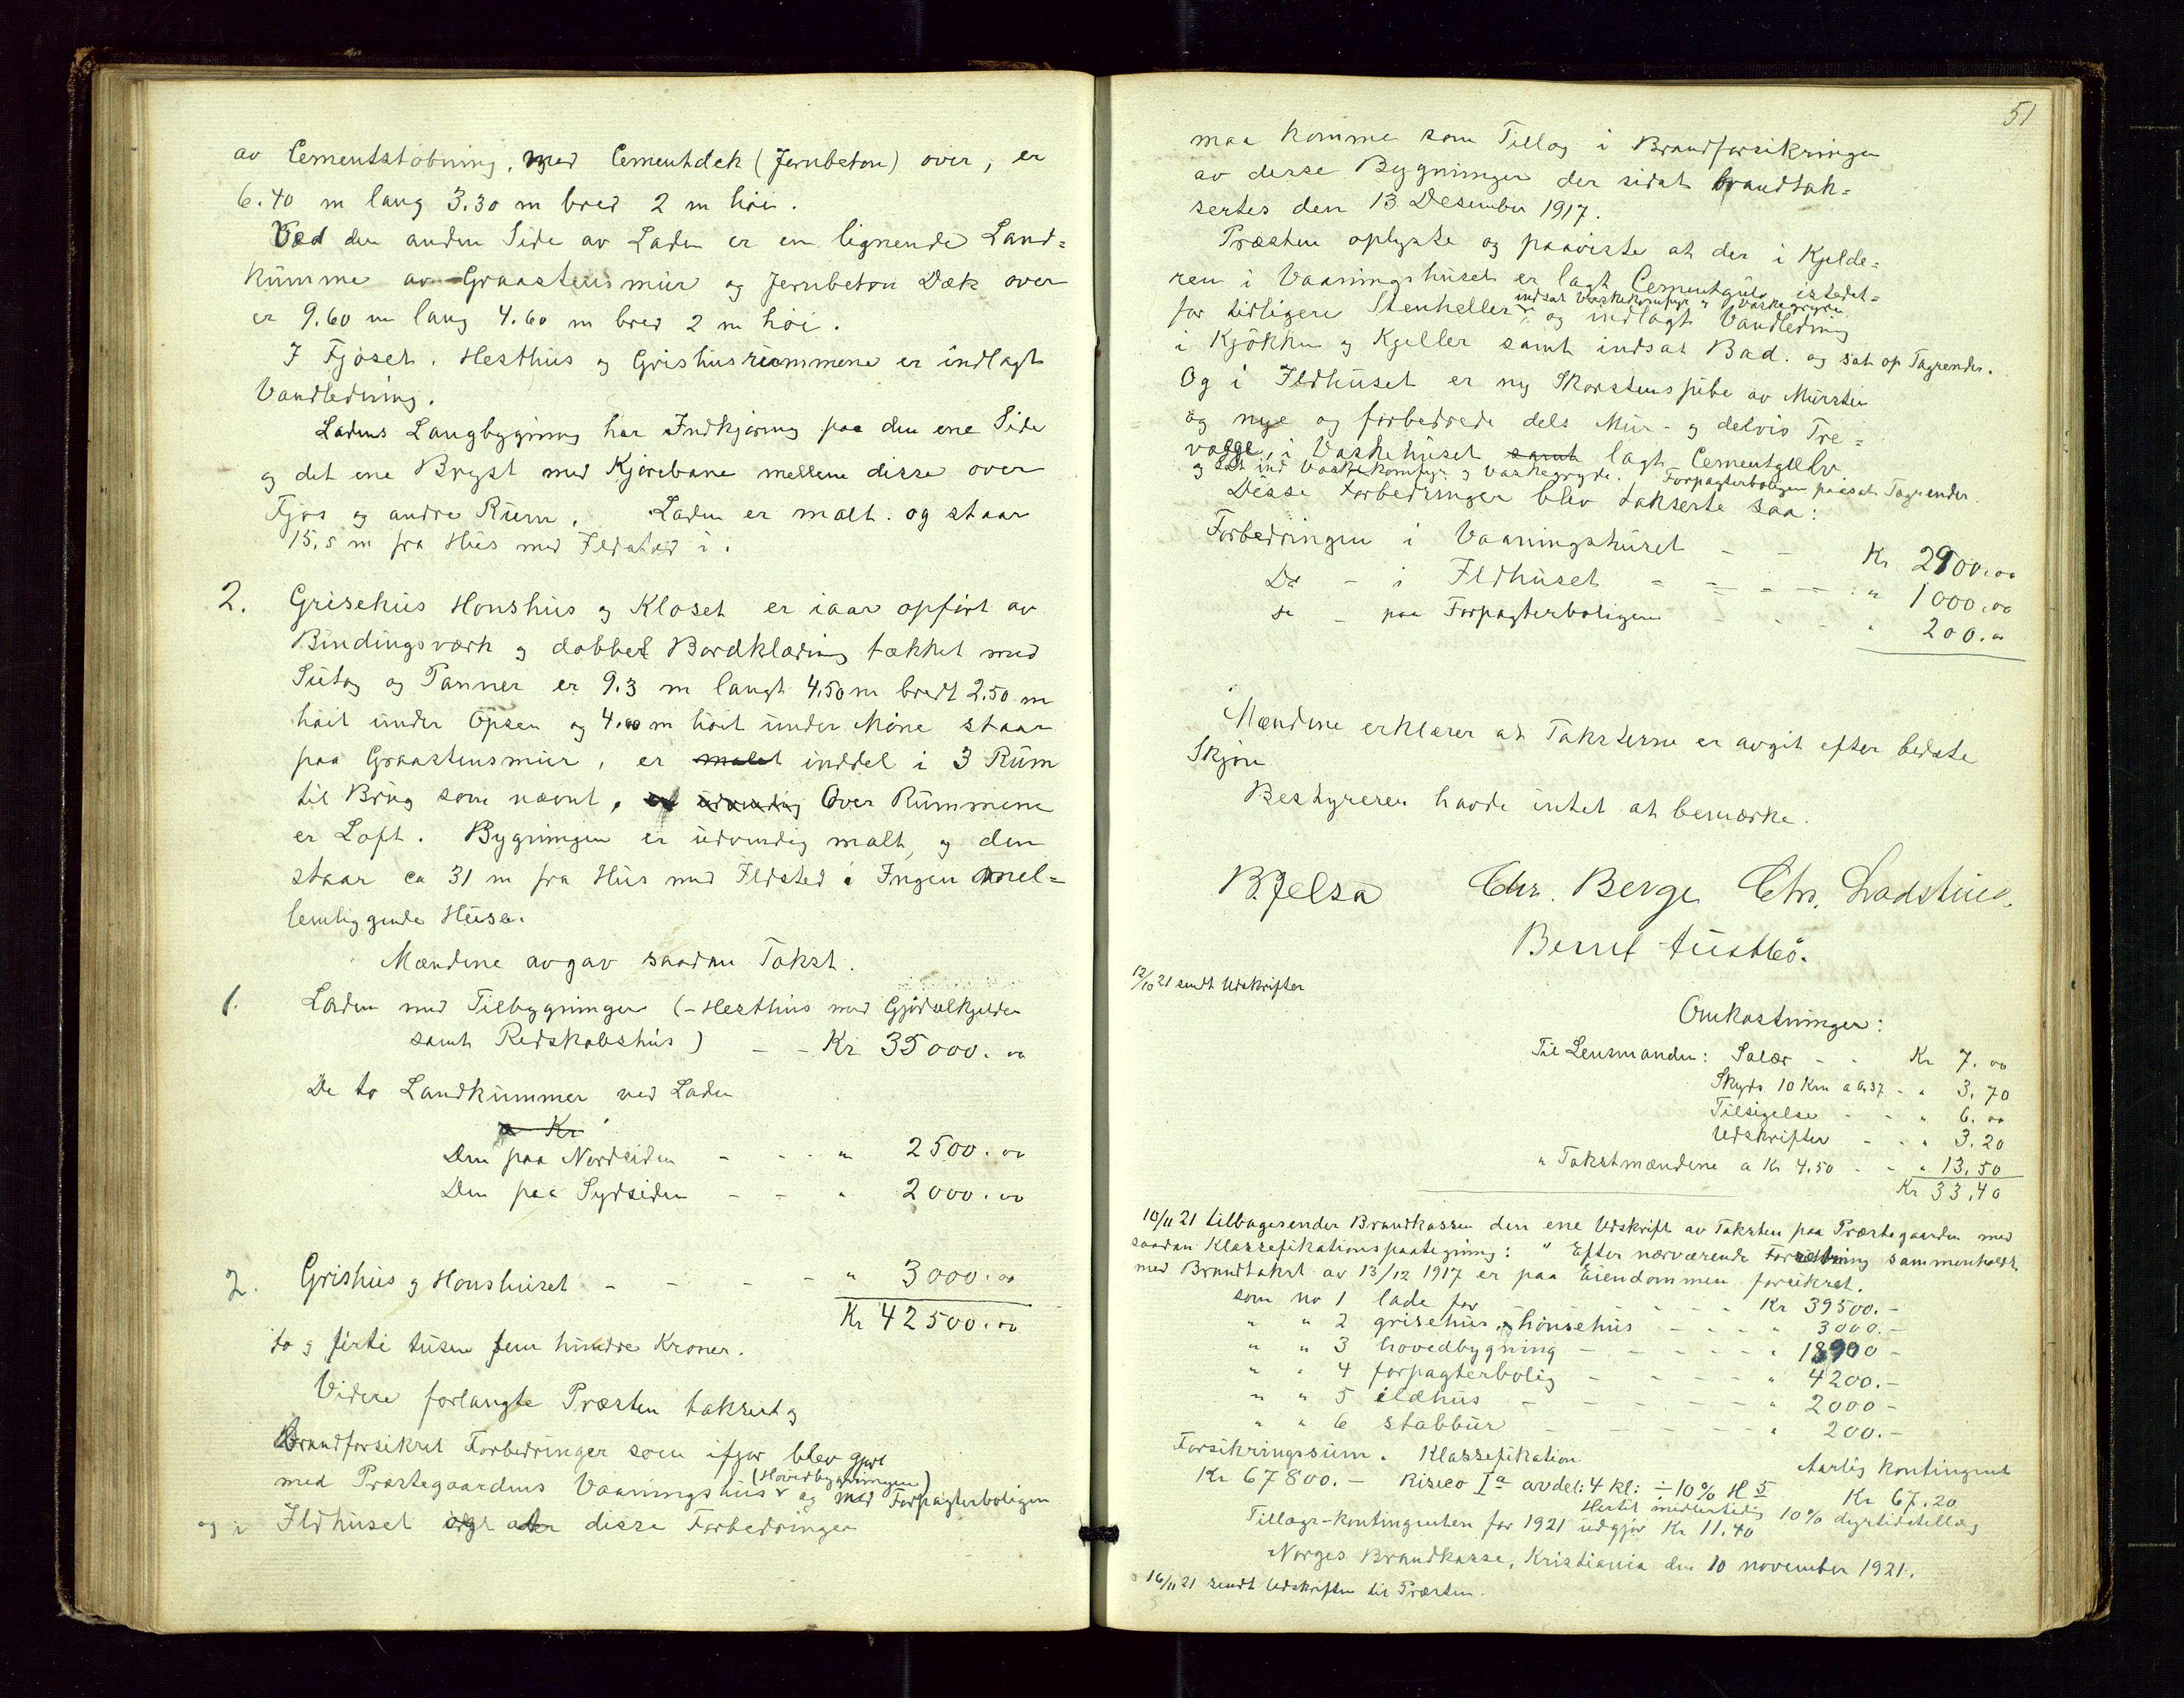 av Cementstøbning, med Cementdek (Jernbeton) over, er
6.40 m lang 3.30 m bred 2 m høi.
Ved den anden Side av Laden er en lignende Land-
kumme av Graastensmur og Jernbeton Dæk over
er 9.60 m lang 4.60 m bred 2 m høi.
I Fjøset. Hesthus og Grishusrummene er indlagt
Vandledning.
Ladens Langbygning har Indkjøring paa den ene Side
og det ene Bryst med Kjørebane mellem disse over
Fjøs og andre Rum. Laden er malt. og staar
15,5 m fra Hus med Ildsted i.
2. Grisehus Hønshus og Kloset er iaar opført av
Bindingsværk og dobbel Bordklædning tækket med
Sutag og Panner er 9.3 m langt 4.50 m bredt 2.50 m
høit under Opsen og 4.00 m høit under Møne staar
paa Graastensmur, er malet inddel i 3 Rum
til Brug som nævnt, er udvendig Over Rummene
er Loft. Bygningen er udvendig malt, og den
staar ca 31 m fra Hus med Ildsted i Ingen mel-
lemliggende Huse.
Mændene avgav saadan Takst.
1. Laden med Tilbygninger (-Hesthus med Gjødselkjelder
samt Redskabshus) - - Kr 35000.00
De to Landkummer ved Laden
a Kr
Den paa Nordsiden - - - " 2500.00
Den paa Sydsiden - - " 2000.00
2. Grishus og Hønshuset - - - - " 3000.00
Kr 42500.00
to og firti tusen fem hundre Kroner.
Videre forlangte Præsten taksert og
Brandforsikret Forbedringer som ifjor blev gjort
(Hovedbygningen)
med Præstegaardens Vaaningshus og med Forpagterboligen
og i Ildhuset disse Forbedringer
51
maa komme som Tillæg i Brandforsikringen
av disse Bygninger der sidst brandtak-
sertes den 13 Desember 1917.
Præsten oplyste og paaviste at der i Kjelde-
ren i Vaaningshuset er lagt Cementgulv istedet-
indsat Vaskekomfyr og Vaskegryde
for tidligere Stenheller og indlagt Vandledning
i Kjøkken og Kjeller samt indsat Bad. og sat op Tagrender.
Og i Ildhuset er ny Skorstenspibe av Mursten
og nye og forbedrede dels Mur- og delvis Tre-
vægge, i Vaskehuset samt lagt Cementgulv
og sat ind Vaskekomfyr og Vaskegryde. Forpagterboligen paasat Tagrender.
Disse Forbedringer blev takserte saa:
Forbedringen i Vaaningshuset - - Kr 2900.00
Do - i Ildhuset - - - - " 1000.00
do - paa Forpagterboligen - - - " 200.00
Mændene erklærer at Taksterne er avgit efter bedste
Skjøn
Bestyreren havde intet at bemærke.
B. Jelsa Chr. Berge Chr. Ladstuen.
Bernt Austbø.
12/10 21 sendt Udskrifter
Omkostninger:
Til Lensmanden: Salær - - Kr 7.00
Skyds 10 Km a 0.37 - " 3.70
Tilsigelse - - " 6.00
Udskrifter - - " 3.20
" Takstmændene a Kr 4.50 - - " 13.50
Kr 33.40
10/11 21 tilbagesender Brandkassen den ene Udskrift av Taksten paa Præstegaarden med
saadan Klassefikationspaategning: " Efter nærværende Forretning sammenholdt
med Brandtakst av 13/12 1917 er paa Eiendommen forsikret.
som no 1 lade for - - - - Kr 39500.-
" " 2 grisehus og hønsehus - - - " 3000.-
" " 3 hovedbygning - - - - - " 18900 -
" " 4 forpagterbolig - - - - " 4200.-
" " 5 ildhus - - - - - " 2000 -
" " 6 stabbur - - - - - " 200.-
Forsikringssum. Klassefikation Aarlig Kontingent
Kr 67800.- Risico Ia avdel: 4 kl: ÷ 10% H 5 Kr 67.20
Hertil midlertidig 10% dyrtidstillæg
Tillægs-kontingenten for 1921 udgjør Kr 11.40
Norges Brandkasse, Kristiania den 10 november 1921.
16/11 21 sendt Udskriften til Præsten.